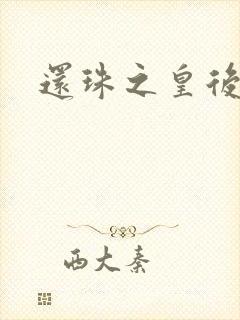 還珠之皇後
西大秦